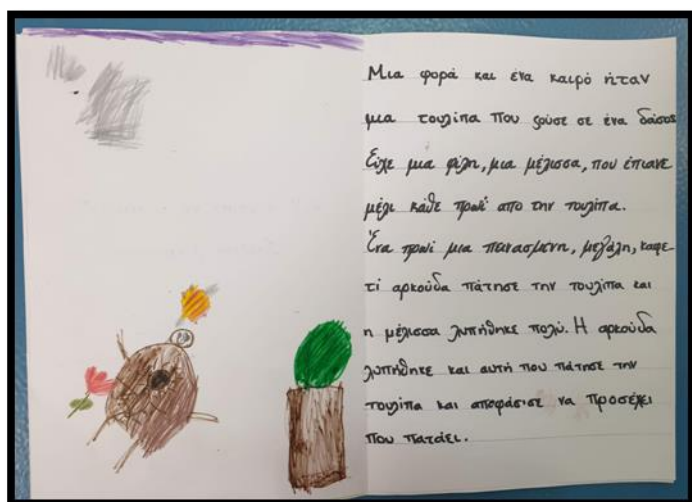 Μια φορά και ένα καιρό ήταν
μια τουλίπα που ζούσε σε ένα δάσος
Είχε μια φίλη, μια μέλισσα, που έπιανε
μέλι κάθε πρωί απο την τουλίπα.
Ένα πρωί μια πεινασμένη, μεγάλη, καφε-
τί αρκούδα πάτησε την τουλίπα και
η μέλισσα λυπήθηκε πολύ. Η αρκούδα
λυπήθηκε και αυτή που πάτησε την
τουλίπα και αποφάσισε να προσέχει
που πατάει.